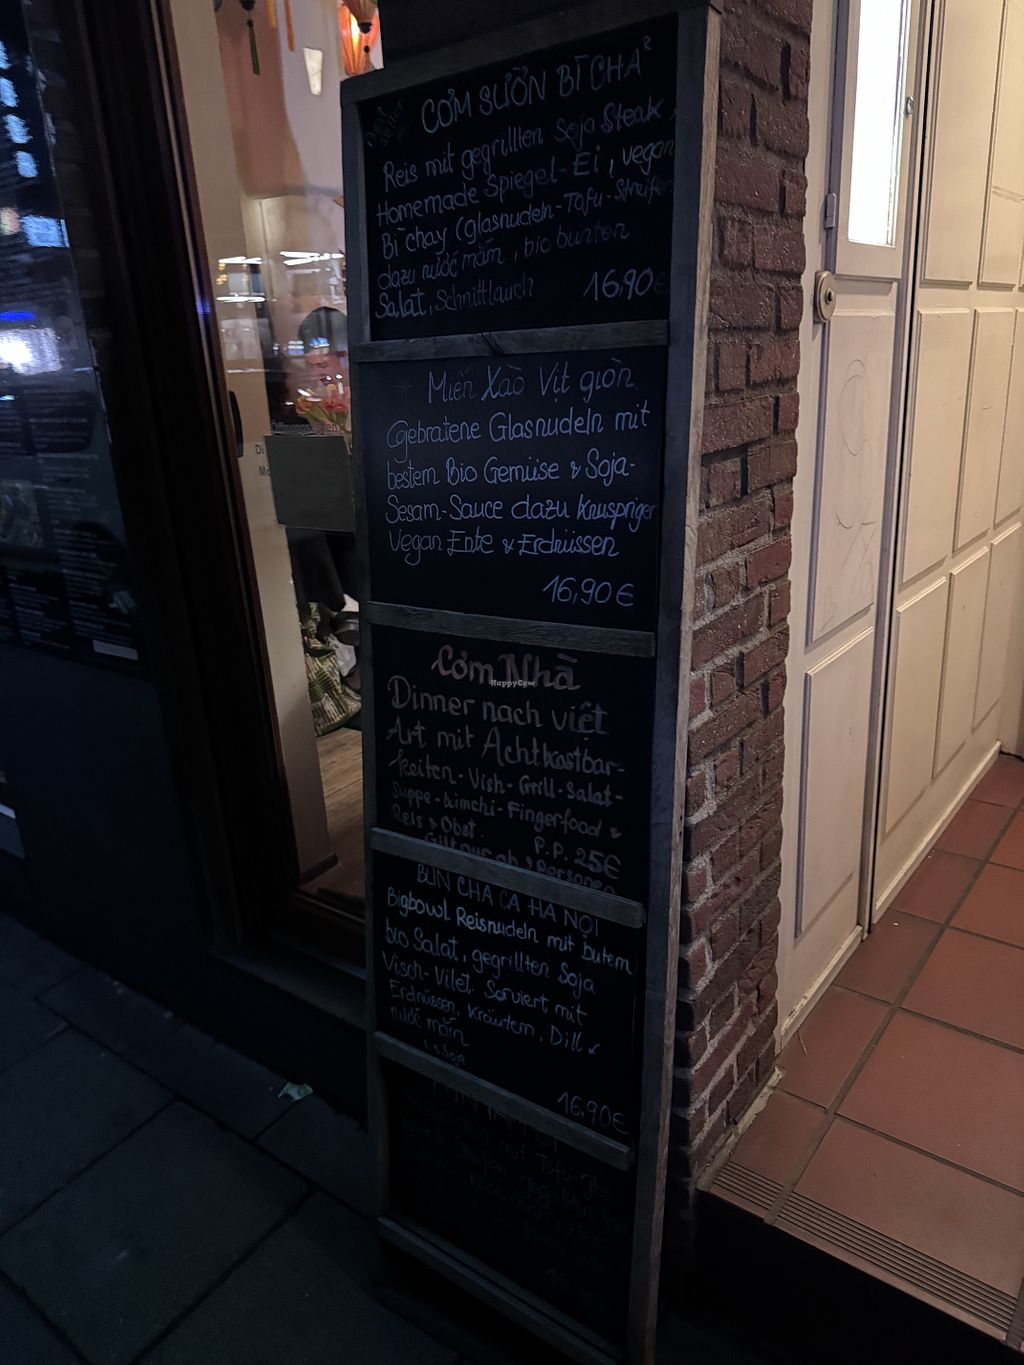 CƠM SƯỜN BÌ CHẢ
Reis mit gegrillten Soja Steak,
Homemade Spiegel-Ei, vegan
Bì chay (glasnudeln-Tofu-Streifen
dazu nước mắm, bio bunten
Salat, Schnittlauch 16,90€
Miến Xào Vịt giòn
Gebratene Glasnudeln mit
bestem Bio Gemüise & Soja-
Sesam-Sauce dazu knuspriger
Vegan Ente & Erdnüssen
16,90€
Cơm Nhà
HappyCow
Dinner nach việt
Art mit Achtkostbar-
keiten-Vish-Grill-Salat-
Suppe-kimchi-Fingerfood &
Reis & Obst. P.P. 25€
Gilt nur ab Personen
BÚN CHẢ CÁ HÀ NỘI
Bigbowl Reisnudeln mit butem
bio Salat, gegrillten Soja
Visch-Vilet. Serviert mit
Erdnüssen, Kräutern, Dill
nước mắm
Soja
16,90€
mit Tofu-Glas